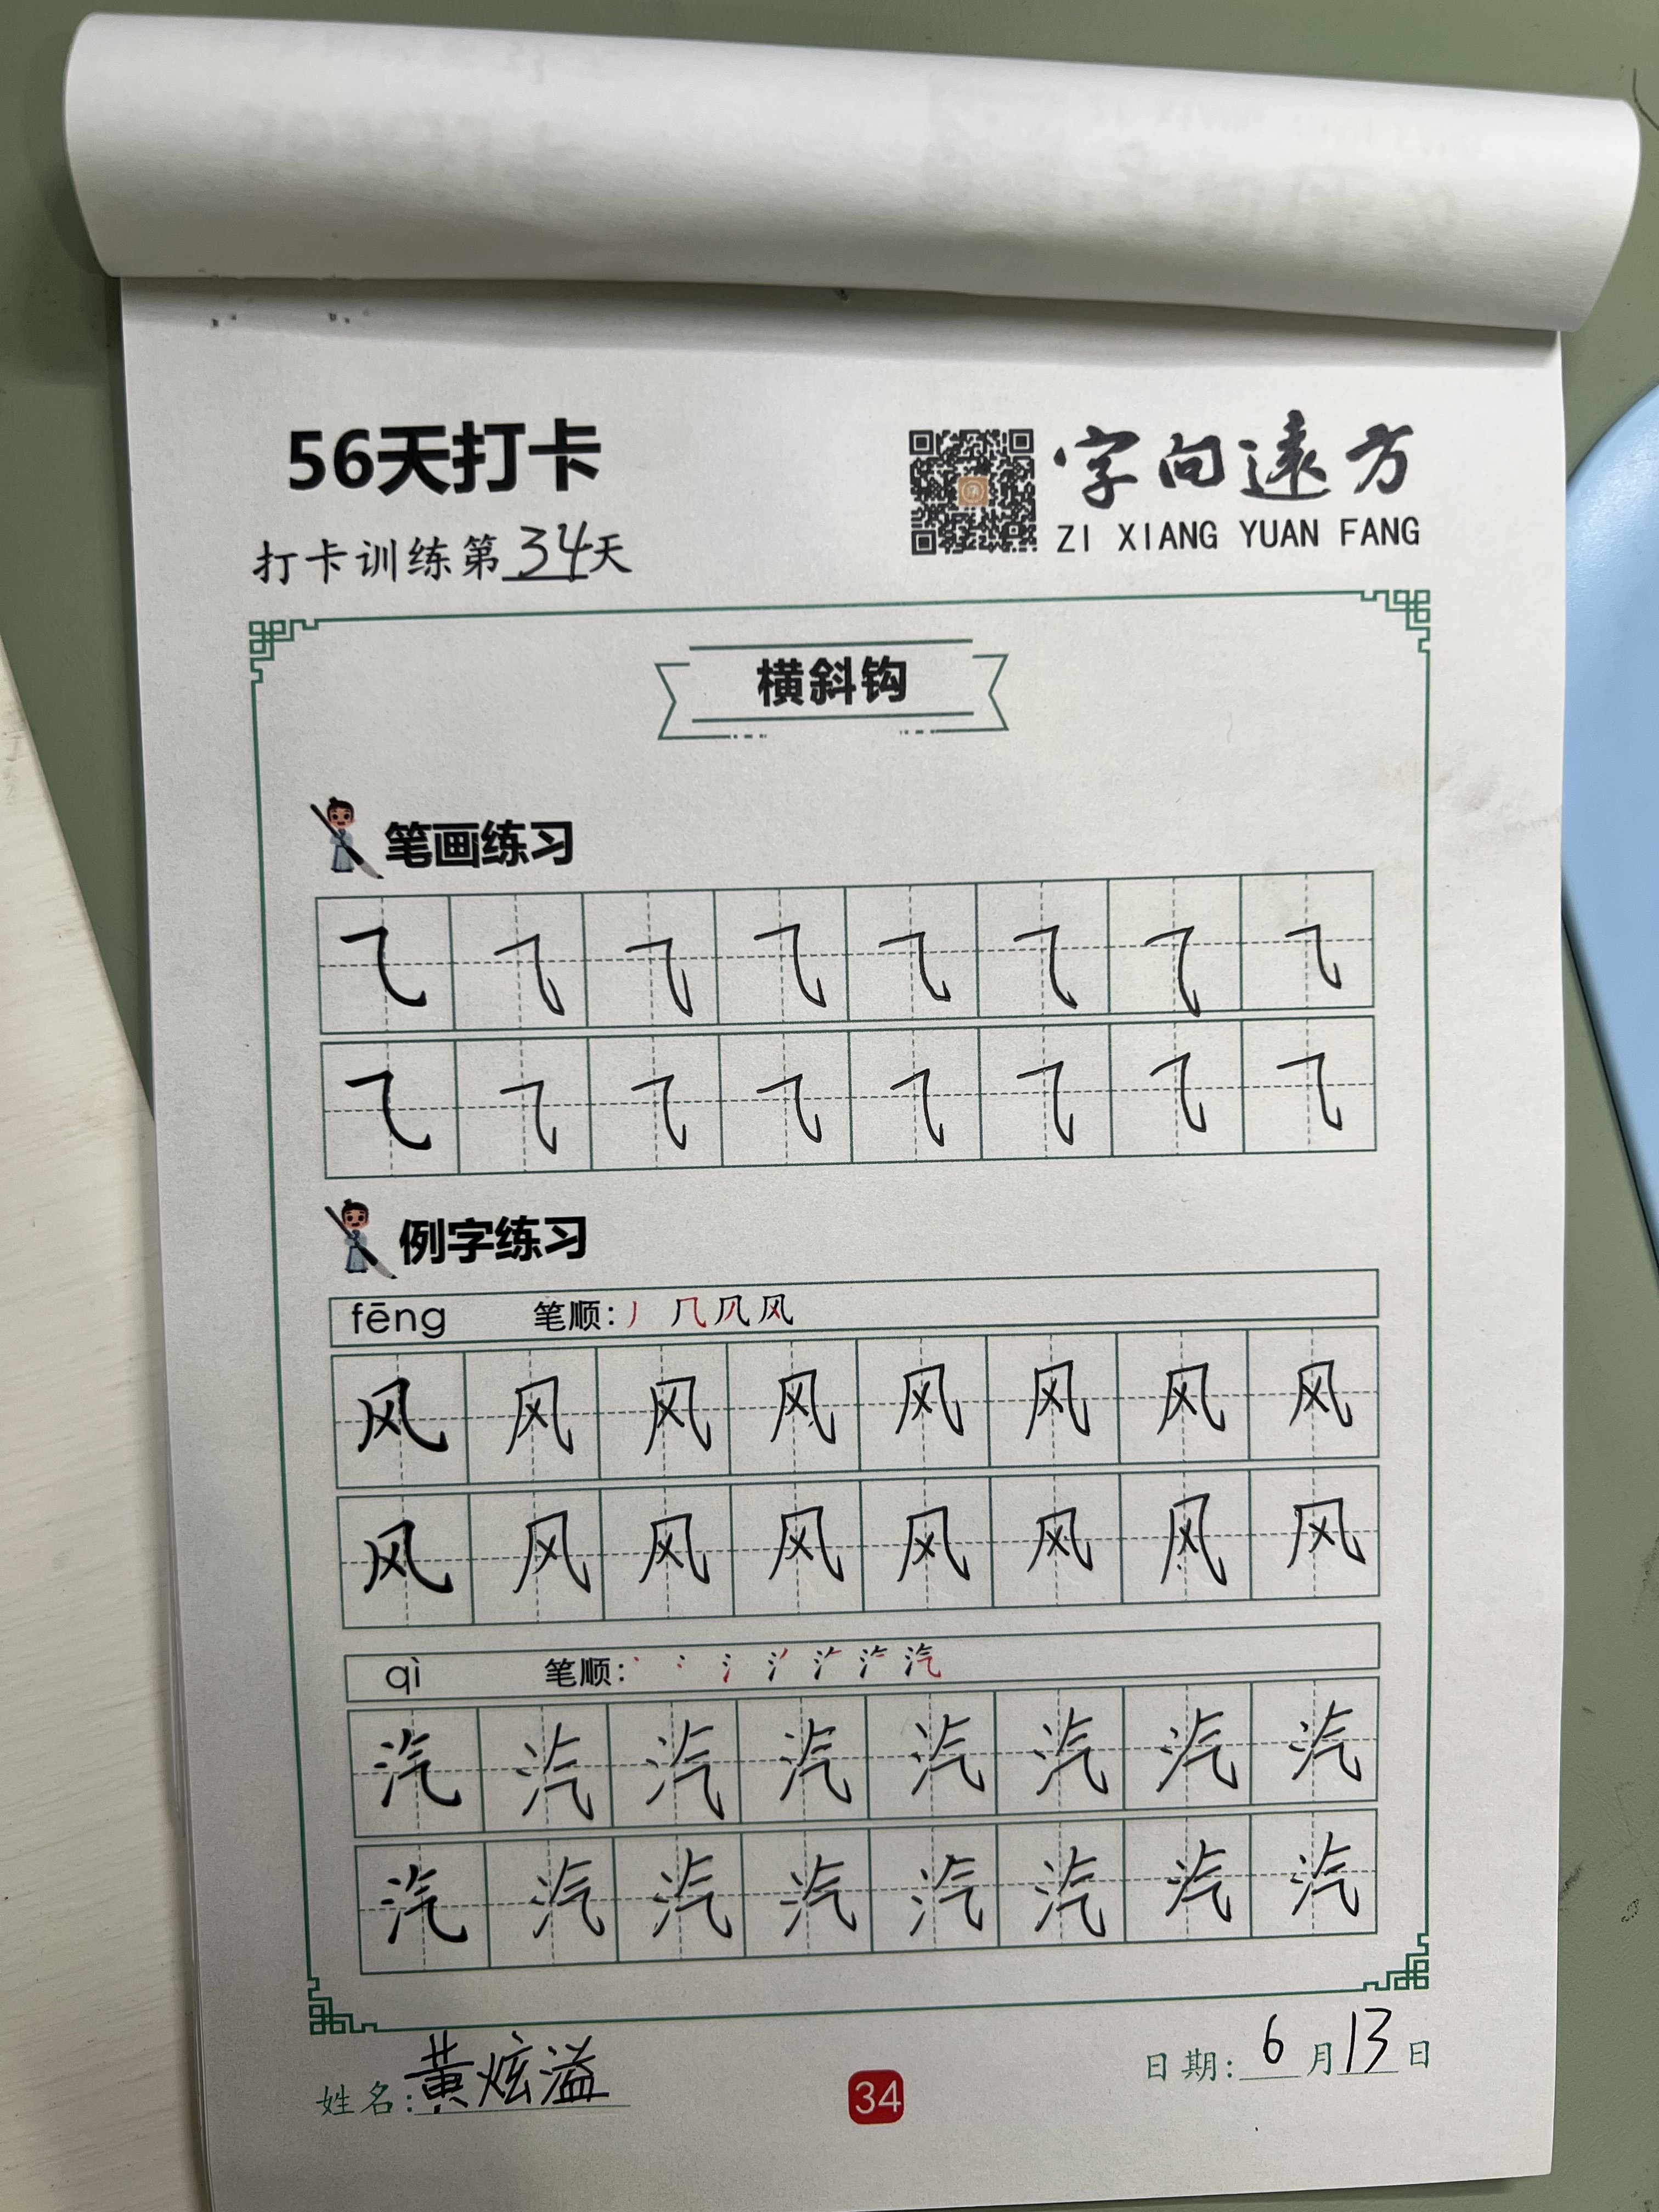 56天打卡
字向遠方
ZI XIANG YUAN FANG
打卡训练第34天
横斜钩
笔画练习
㇈ ㇈ ㇈ ㇈ ㇈ ㇈ ㇈ ㇈
㇈ ㇈ ㇈ ㇈ ㇈ ㇈ ㇈ ㇈
例字练习
fēng 笔顺:丿 几 风
风 风 风 风 风 风 风 风
风 风 风 风 风 风 风 风
qì 笔顺: 汽
汽 汽 汽 汽 汽 汽 汽 汽
汽 汽 汽 汽 汽 汽 汽 汽
姓名:黄炫溢
34
日期:6月13日